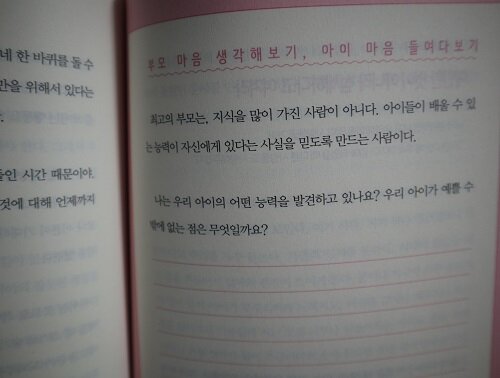 네 한 바퀴를 돌 수
만을 위해서 있다는
들인 시간 때문이야.
것에 대해 언제까지
부모 마음 생각해보기, 아이 마음 들여다보기
최고의 부모는, 지식을 많이 가진 사람이 아니다. 아이들이 배울 수 있
는 능력이 자신에게 있다는 사실을 믿도록 만드는 사람이다.
나는 우리 아이의 어떤 능력을 발견하고 있나요? 우리 아이가 예쁠 수
밖에 없는 점은 무엇일까요?